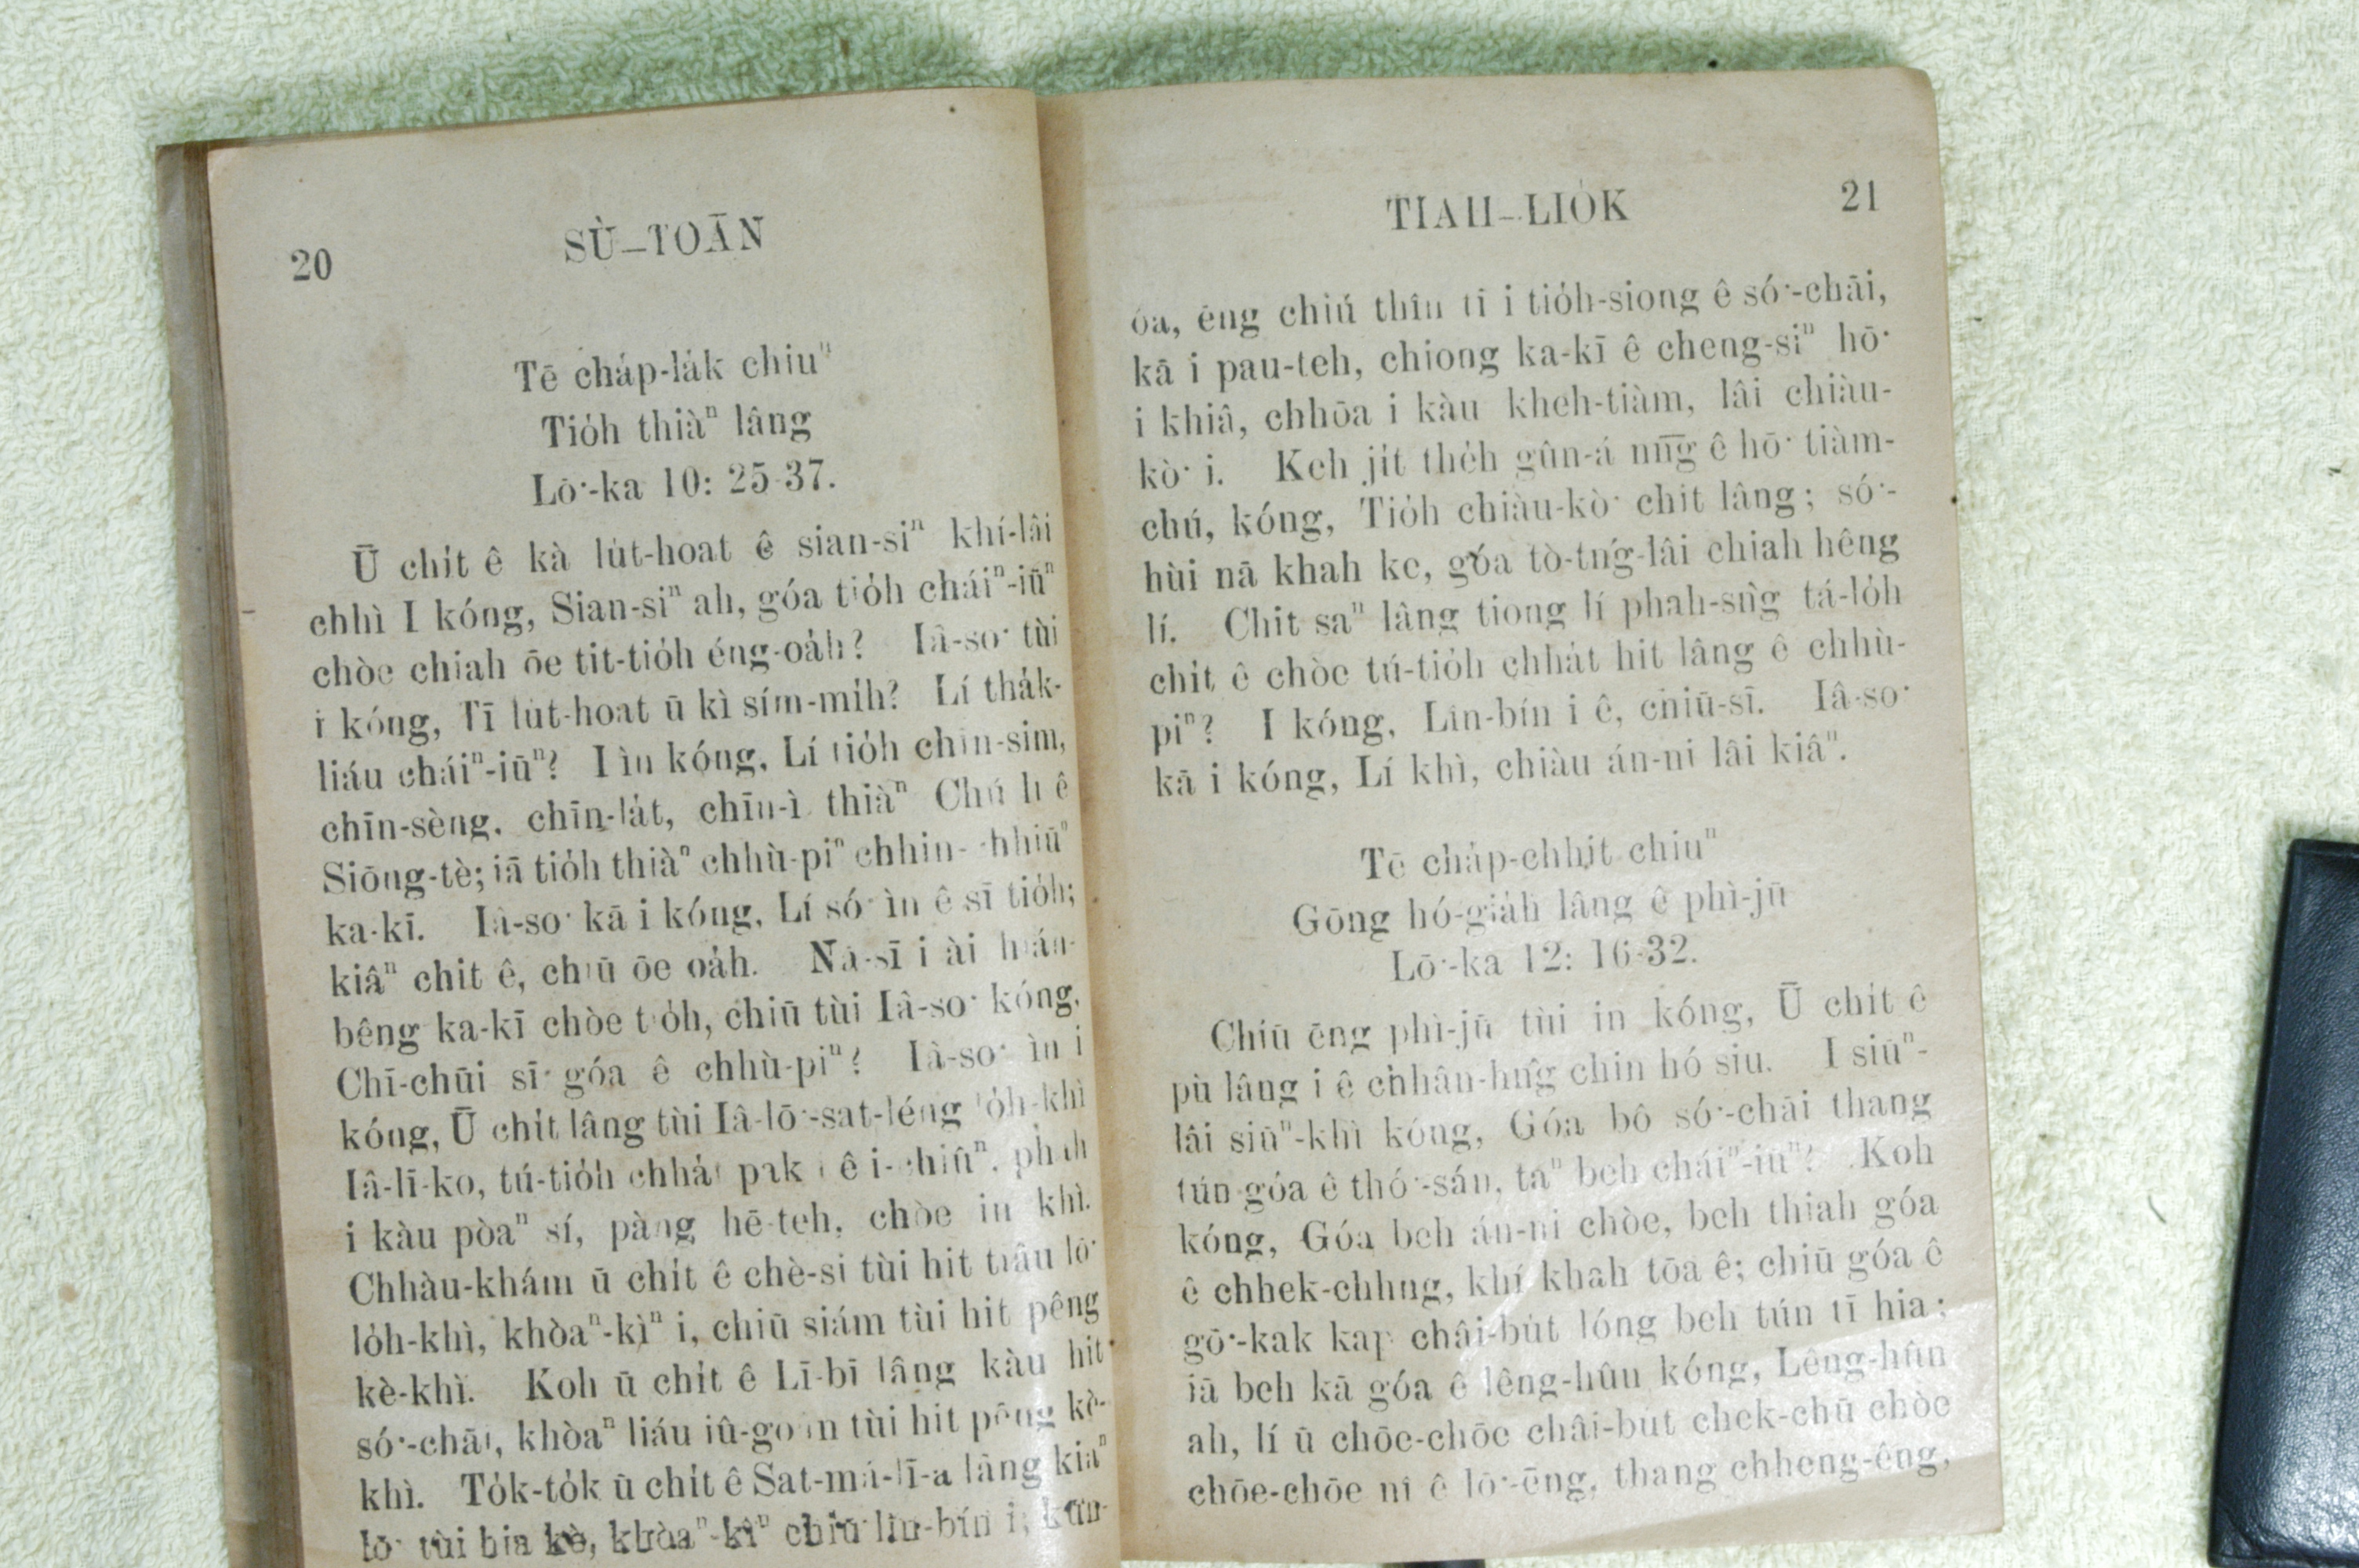 20
SÙ–TOĀN
Tē cha̍p-la̍k chiuⁿ
Tio̍h thiàⁿ lâng
Lō͘-ka 10: 25-37.
Ū chi̍t ê kà lu̍t-hoat ê sian-siⁿ khí-lâi
chhì I kóng, Sian-siⁿ ah, góa tio̍h cháiⁿ-iūⁿ
chòe chiah ōe tit-tio̍h éng-oa̍h? Iâ-so͘ tùi
i kóng, Tī lu̍t-hoat ū kì sím-mi̍h? Lí tha̍k-
liáu cháiⁿ-iūⁿ? I ìn kóng, Lí tio̍h chīn-sim,
chīn-sèng, chīn-la̍t, chīn-ì thiàⁿ Chú lí ê
Siōng-tè; iā tio̍h thiàⁿ chhù-piⁿ chhin-chhiūⁿ
ka-kī. Iâ-so͘ kā i kóng, Lí só͘ ìn ê sī tio̍h;
kiâⁿ chit ê, chiū ōe oa̍h. Nā-sī i ài hián-
bêng ka-kī chòe tio̍h, chiū tùi Iâ-so͘ kóng,
Chī-chūi sī góa ê chhù-piⁿ? Iâ-so͘ ìn i
kóng, Ū chi̍t lâng tùi Iâ-lō͘-sat-léng lo̍h-khì
Iâ-lī-ko, tú-tio̍h chha̍t pak i ê i-chiûⁿ, phah
i kàu pòaⁿ sí, pàng hē-teh, chòe in khì.
Chhàu-khám ū chi̍t ê chè-si tùi hit tiâu lō͘
lo̍h-khì, khòaⁿ-kìⁿ i, chiū siám tùi hit pêng
kè-khì. Koh ū chi̍t ê Lī-bī lâng kàu hit
só͘-chāi, khòaⁿ liáu iû-goân tùi hit pêng kè-
khì. To̍k-to̍k ū chi̍t ê Sat-má-lī-a lâng kiâⁿ
lō͘ tùi hia kè, khòaⁿ-kìⁿ chiū lîn-bín i; kūn-
TIAH–LIO̍K
21
óa, ēng chiú thîn tī i tio̍h-siong ê só͘-chāi,
kā i pau-teh, chiong ka-kī ê cheng-siⁿ hō͘
i khiâ, chhōa i kàu kheh-tiàm, lâi chiàu-
kò͘ i. Keh ji̍t the̍h gûn-á nn̄g ê hō͘ tiàm-
chú, kóng, Tio̍h chiàu-kò͘ chit lâng; só͘-
hùi nā khah ke, góa tò-tńg-lâi chiah hêng
lí. Chit saⁿ lâng tiong lí phah-sǹg tá-lo̍h
chi̍t ê chòe tú-tio̍h chha̍t hit lâng ê chhù-
piⁿ? I kóng, Lîn-bín i ê, chiū-sī. Iâ-so͘
kā i kóng, Lí khì, chiàu án-ni lâi kiâⁿ.
Tē cha̍p-chhit chiuⁿ
Gōng hó-gia̍h lâng ê phì-jū
Lō͘-ka 12: 16-32.
Chiū ēng phì-jū tùi in kóng, Ū chi̍t ê
pù lâng i ê chhân-hn̂g chin hó siu. I siūⁿ-
lâi siūⁿ-khì kóng, Góa bô só͘-chāi thang
tún góa ê thó͘-sán, taⁿ beh cháiⁿ-iūⁿ? Koh
kóng, Góa beh án-ni chòe, beh thiah góa
ê chhek-chhng, khí khah tōa ê; chiū góa ê
gō͘-kak kap châi-bu̍t lóng beh tún tī hia;
iā beh kā góa ê lêng-hûn kóng, Lêng-hûn
ah, lí ū chōe-chōe châi-bu̍t chek-chū chòe
chōe-chōe nî ê lō͘-ēng, thang chheng-êng,